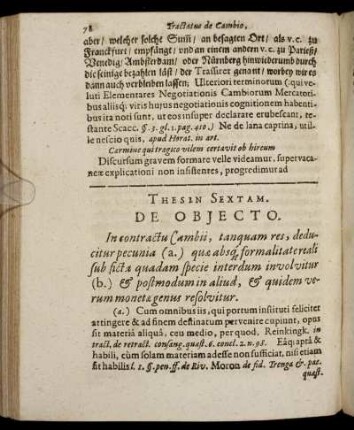 78 Tractatus de Cambio,
aber / welcher solche Sum̃ / an besagten Ort / als v. c. zu
Franckfurt / empfängt / und an einem andern v. c. zu Pariß /
Venedig / Ambsterdam / oder Nürnberg hinwiederumb durch
die seinige bezahlen läst / der Trassirer genant / worbey wir es
dann auch verbleiben lassen; Ulteriori terminorum (quive-
luti Elementares Negotiationis Cambiorum Mercatori-
bus aliisq; viris hujus negotiationis cognitionem habenti-
bus ita noti sunt, ut eos insuper declarare erubescant, te-
stante Scacc. §. 3. gl. 1. pag. 410.) Ne de lana captina, ut il-
le nescio quis, apud Horat. in art.
Carmine qui tragico vilem certavit ob hircum
Discursum gravem formare velle videamur. supervaca-
neæ explicationi non insistentes, progredimur ad
THESIN SEXTAM.
DE OBJECTO.
In contractu Cambii, tanquam res, dedu-
citur pecunia (a.) quæ absq; formalitate reali
sub ficta quadam specie interdum involvitur
(b.) & postmodum in aliud, & quidem ve-
rum monetæ genus resolvitur.
(a.) Cum omnibus iis, qui portum instituti feliciter
attingere & ad finem destinatum pervenire cupiunt, opus
sit materiâ aliquâ, ceu medio, per quod. Reinkingk. in
tract. de retract. consang. quæst. 6. concl. 2. n. 95. Eâq; aptâ &
habili, cùm solam materiam adesse non sufficiat, nisi etiam
sit habilis l. 1. §. pen. ff. de Riv. Moron. de fid. Treuga & pac.
quæst.